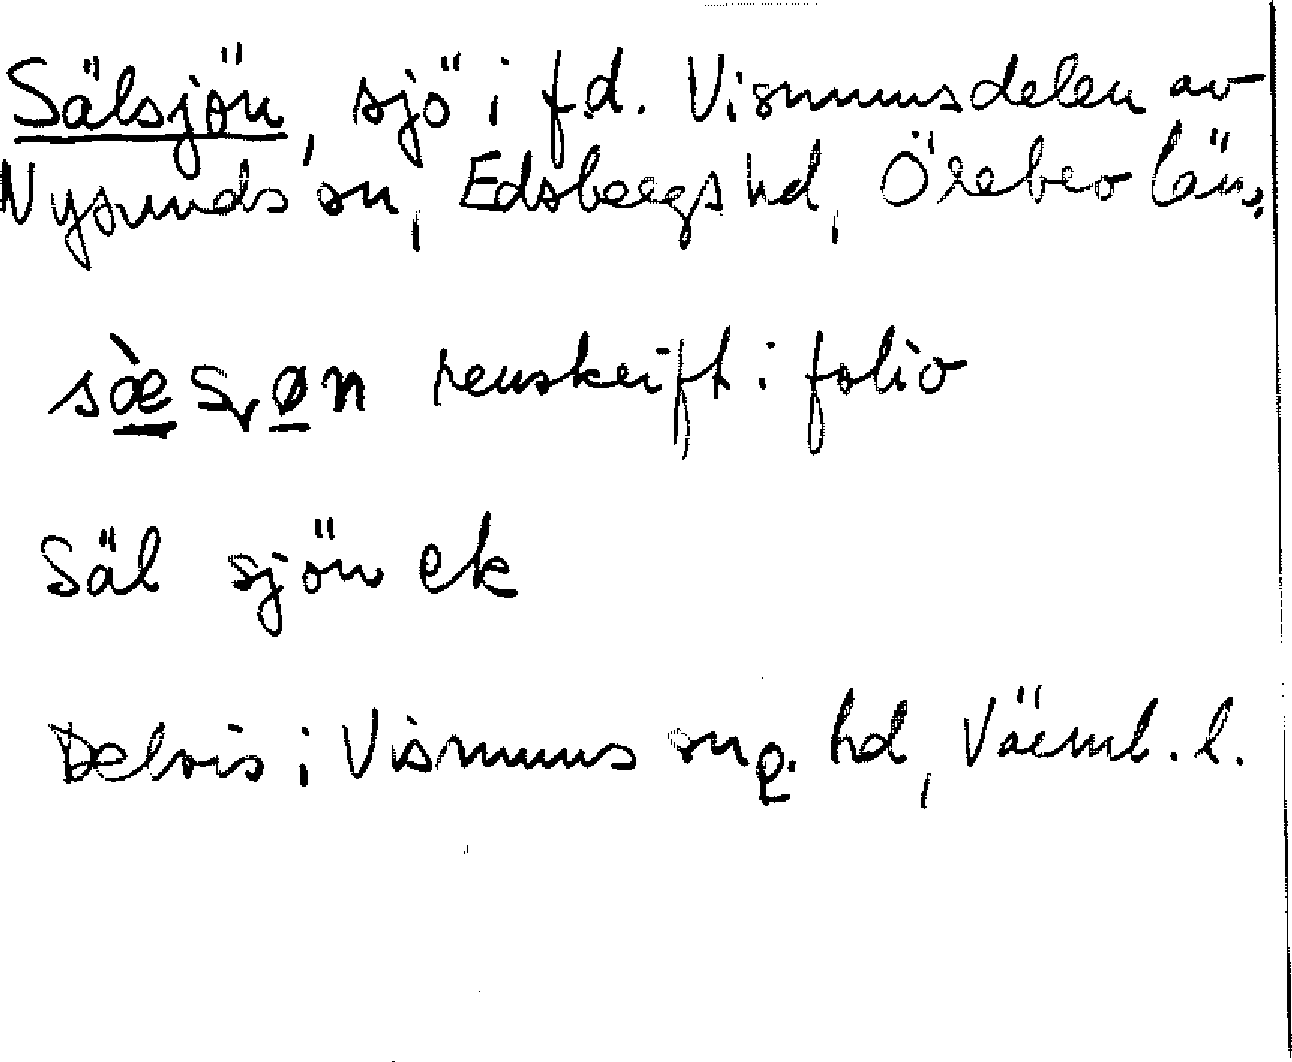 Sälsjön, sjö i f.d. Visnumsdelen av
Nysunds sn, Edsbergs hd, Örebro län.
renskrift i folio
Säl sjön ek
Delvis i Visnums sn o. hd, Värml. l.